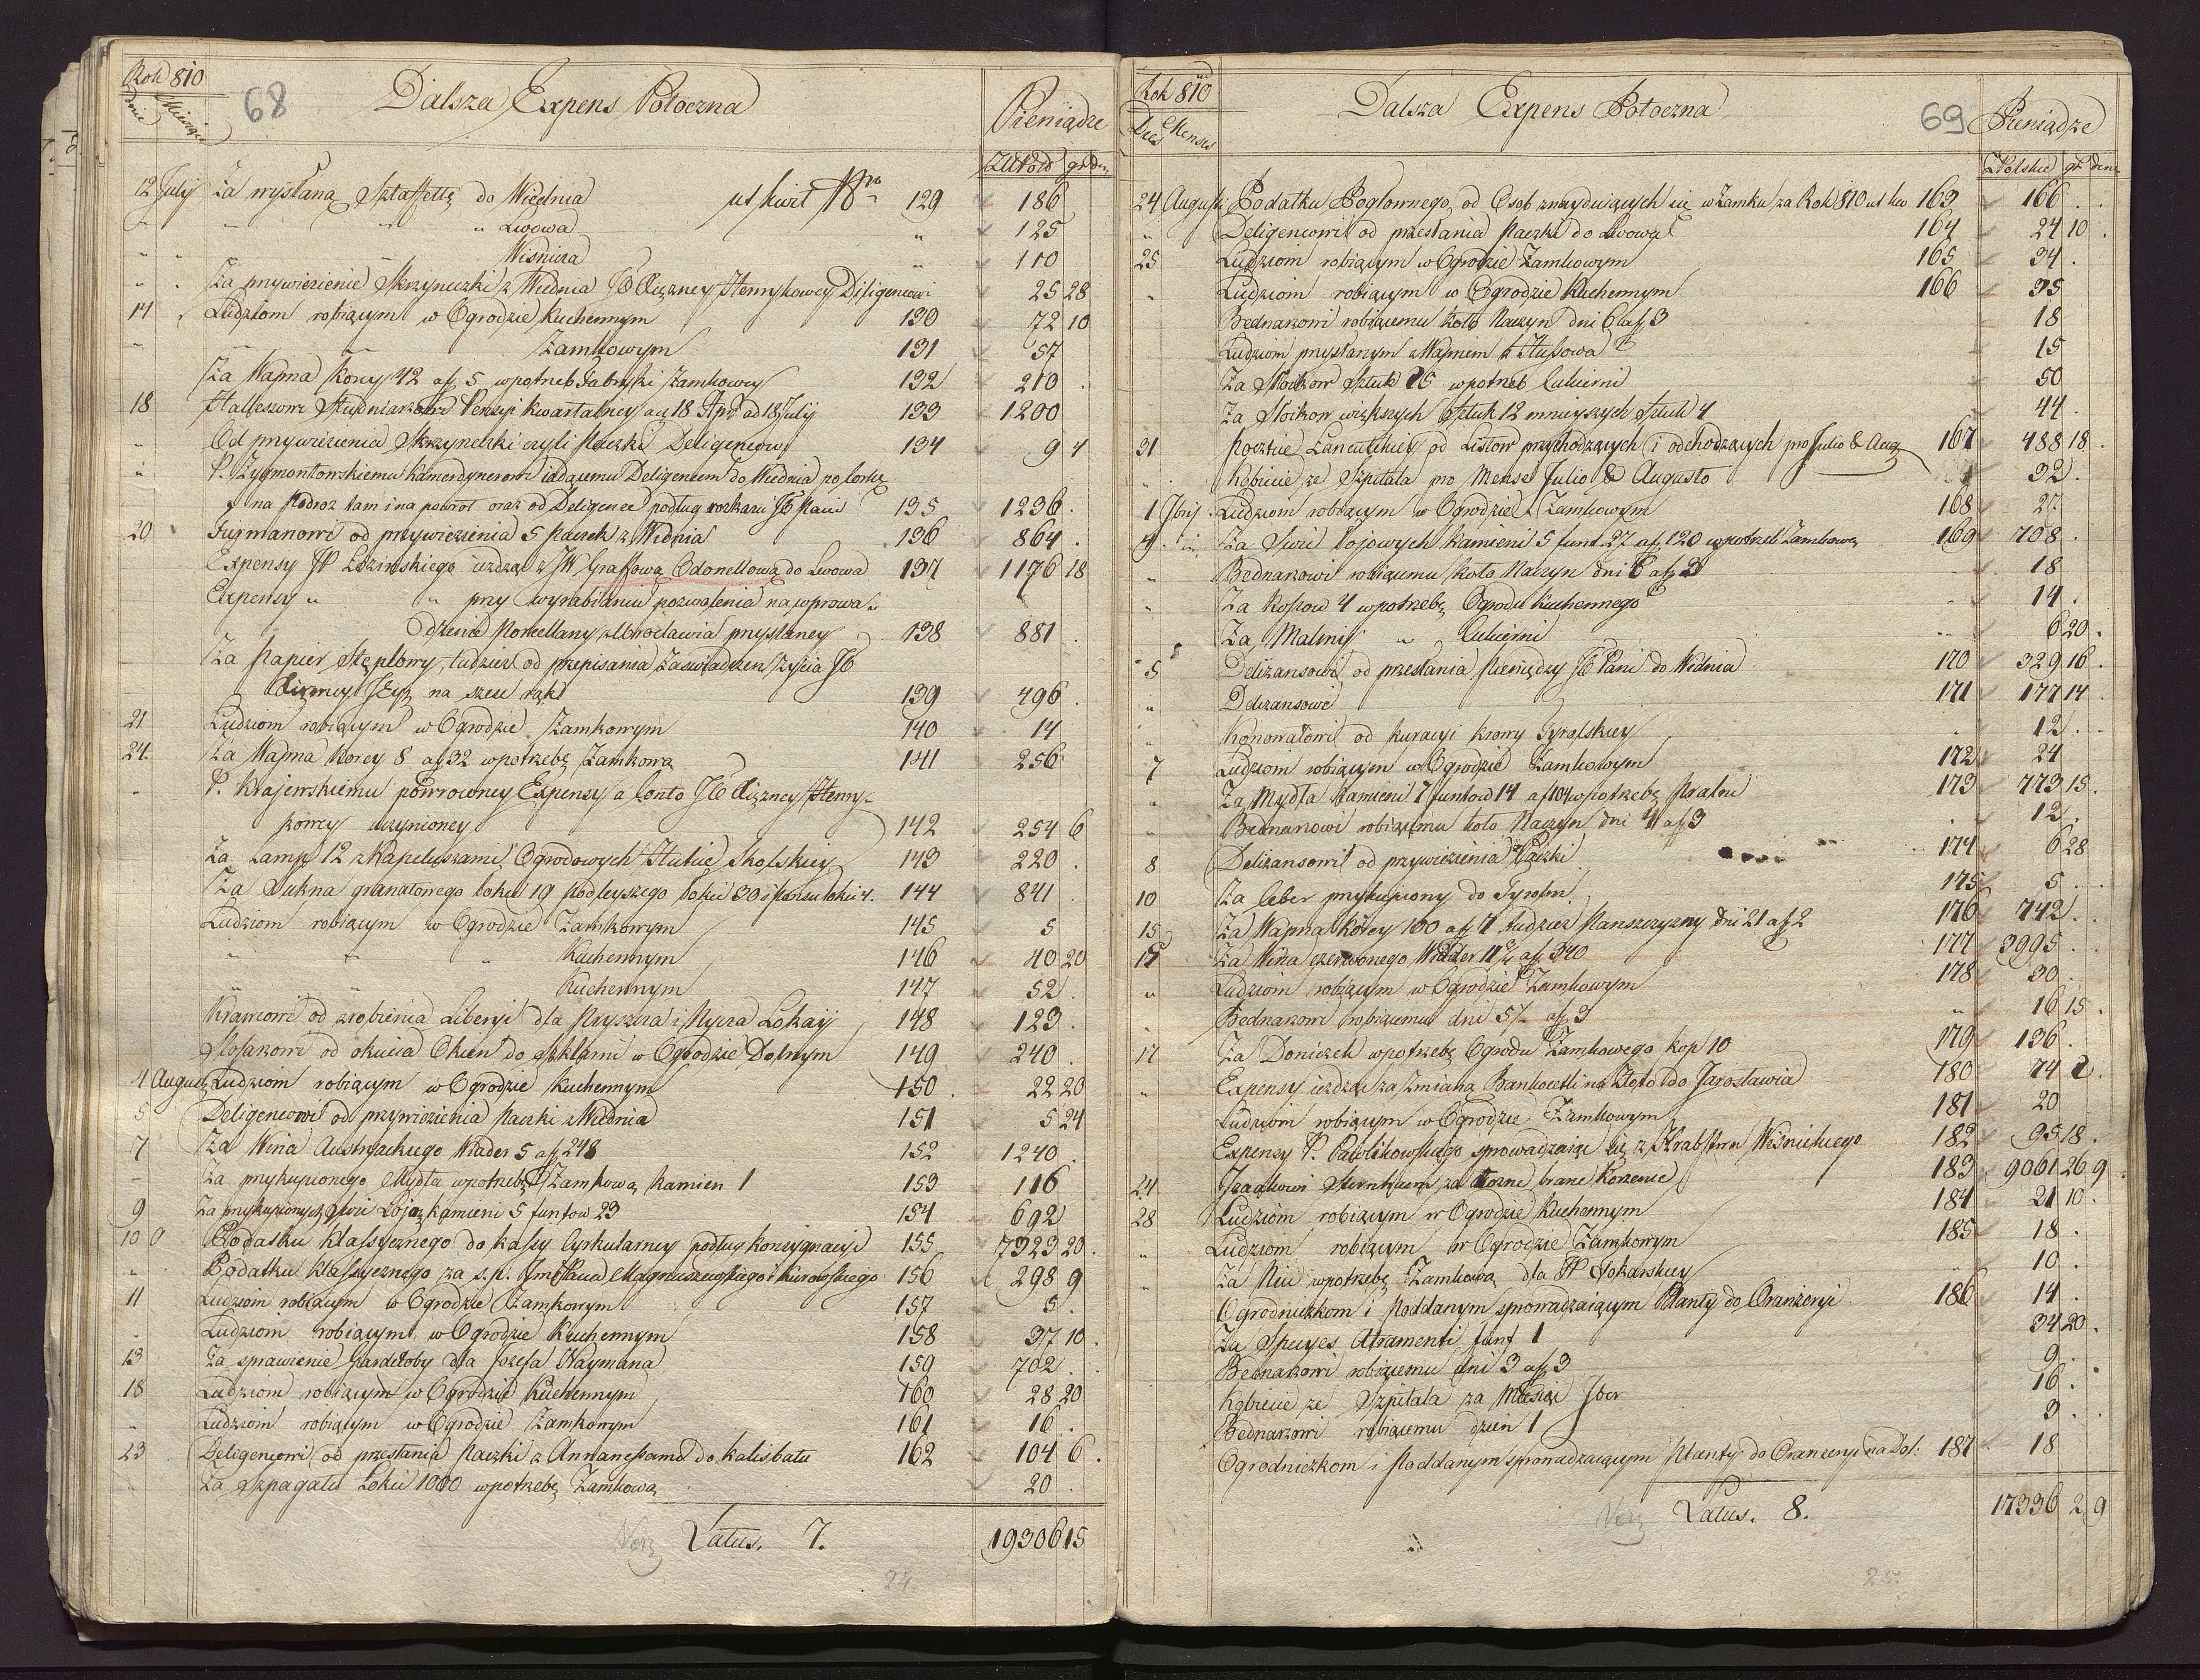 Rok 810
68
Dalsza Expens Potoczna
Pieniądze
dnie Miesiące
gr den
12 July Za wysłaną Sztaffetę do Wiednia ut kwit Nro 129 186
" " " Lwowa " 125
" " Wiśnicza " 110
" " Za przywiezienie Skrzyneczki z Wiednia JO Xiężney Henrykowey Diligencowi 25 28
14 Ludziom robiącym w Ogrodzie Kuchennym 130 72 10
Zamkowym 131 57
Za Wapna Korcy 42 a f 5 w potrzeb Fabryki Zamkowey 132 210
18 Studniarzowi Pensyi kwartalney a 18 Apr ad 18 July 133 1200
" Od przywiezienia Skrzyneczki czyli Paczki Deligencowi 134 9 4
" P. Zygmontowskiemu Kamerdynerowi iadącemu Deligencem do Wiednia po
na Podroz tam i na powrot oraz od Deligence podług rozkazu JO Pani 135 1236
20 Furmanowi od przywiezienia 5 Paczek z Widnia 136 864
Expensy JP Łozinskiego iezdząc z JW Graffową Odonellową do Lwowa 137 1176 18
Expensy " " przy wyrabianiu pozwolenia na wprowa-
dzenie Porcellany z Wrocławia przysłaney 138 881
Za Papier Stęplowy, tudziesz od przepisania Zaswiadczen Zycia JO
Xiężney Jeym na szesc rąk 139 496
21 Ludziom robiącym w Ogrodzie Zamkowym 140 14
24. Za Wapna Korcy 8 a f 32 w potrzebę Zamkową 141 256
" P. Krajewskiemu powrowney Expensy a Conto JO Xiężney Henry-
kowey uczynioney 142 254 6
Za Lamp 12 z Kapeluszami Ogrodowych Hutcie Skolskiey 143 220
Za Sukna granatowego Łokci 19 podleyszego Łokci 30 i Ponsu Łokci 4. 144 841
Ludziom robiącym w Ogrodzie Zamkowym 145 5
" " " Kuchennym 146 40 20
" " Kuchennym 147 52
Krawcowi od zrobienia Liberyi dla Pryszcza i Nycza Lokaji 148 123
Slosarzowi od okucia Okien do szklarni w Ogrodzie Dolnym 149 240
4 August Ludziom robiącym w Ogrodzie Kuchennym 150 22 20
5 Deligencowi od przywiezienia Paczki z Wiednia 151 5 24
7 Za Wina Austryackiego Wiader 5 a f 248 152 1240
" Za przykupionego Mydła w potrzebę Zamkową Kamien 1 153 116
9 Za przykupionych Swic Łojo Kamieni 5 funtow 23 154 692
10 Podatku Klassycznego do Kassy Cyrkularney podług Konsygnacyi 155 7323 20
" Podatku Klassycznego za s. p. Magnuszewskiego i Kurowskiego 156 298 9
11 Ludziom robiącym w Ogrodzie Zamkowym 157 5
" Ludziom robiącym w Ogrodzie Kuchennym 158 37 10
13 Za sprawienie Garderoby dla Jozefa Naymana 159 702
18 Ludziom robiącym w Ogrodzie Kuchennym 160 28 20
" Ludziom robiącym w Ogrodzie Zamkowym 161 16
23 Deligencowi od przesłania Paczki z do Kalisbatu 162 104 6
Za Szpagatu Łokci 1000 w potrzebę Zamkową 20
Latus. 7. 19306 15
24.
Rok 810
Dies Menses
Dalsza Expens Potoczna
69
Pieniądze
Zł Polskie gr den
24 August Podatku Pogłownego, od Osob znayduiących się w Zamku za Rok 810 ut kw 163 166
" Deligencowi od przesłania Paczki do Lwowa 164 24 10
25 Ludziom robiącym w Ogrodzie Zamkowym 165 34
" Ludziom robiącym w Ogrodzie Kuchennym 166 35
Bednarzowi robiącemu koło Naczyn dni 6 a f 3 18
Ludziom przysłanym z Wapnem z Hussowa 15
Za Słoikow Sztuk 25 w potrzeb Cukierni 50
Za Słoikow większych Sztuk 12 mnieyszych Sztuk 4 44
31 Poczcie Łancutskiey od Listow przychodzących i odchodzących pro Julio & Aug 167 488 18
Kobiecie ze Szpitala pro Mense Julio & Augusto 32
1 7bris Ludziom robiącym w Ogrodzie Zamkowym 168 27
4 Za Swic łojowych Kamieni 5 funt 27 a f 120 w potrzeb Zamkową 169 708
" Bednarzowi robiącemu koło Naczyn dni 6 a f 3 18
" Za Koszow 4 w potrzebę Ogrodu Kuchennego 14
" Za Maliny " Cukierni 6 20
5 Deliżansowi od przesłania Pieniędzy JO Pani do Widnia 170 329 16
" Deliżansowi 171 177 14
" Konowałowi od Kuracyi Krowy Tyrolskiey 12
7 Ludziom robiącym w Ogrodzie Zamkowym 172 24
" Za Mydła Kamieni 7 funtow 14 a f 104 w potrzebę Pralni 173 773 15
" Bednarzowi robiącemu koło Naczyn dni 4 a f 3 12
8 Deliżansowi od przywiezienia Paczki 174 6 28
10 Za Ceber przykupiony do 175 5
15 Za Wapna Korcy 100 a f 7 tudziesz Panszczyzny dni 21 a f 2 176 742
15 Za Wina czerwonego Wiader 11 3/4 a f 340 177 3995
" Ludziom robiącym w Ogrodzie Zamkowym 178 30
" Bednarzowi robiącemu dni 5 1/2 a f 3 " 16 15
17 Za Doniczek w potrzebę Ogrodu Zamkowego Kop 10 179 136
" Expensy iezdząc za zmianą Bankocetli na Złoto do Jarosławia 180 74 2
Ludziom robiącym w Ogrodzie Zamkowym 181 20
Expensy P. Pawlikowskiego sprowadzaiąc się z Hrabstwa Wiśnickiego 182 95 18
24 Jzaakowi Sternheim za rozne brane Korzenie 183 9061 26 9
28 Ludziom robiącym w Ogrodzie Kuchennym 184 21 10
" Ludziom robiącym w Ogrodzie Zamkowym 185 18
" Za Nici w potrzebę Zamkową dla JP Tokarskiey 10
Ogrodniczkom i Poddanym sprowadzaiącym Planty do Oranżeryi 186 14
Za Species Atramenti funt 1 34 20
Bednarzowi robiącemu dni 3 a f 3 9
Kobiecie ze Szpitala za Miesiąc 7ber 16
Bednarzowi robiącemu dzien 1 3
Ogrodniczkom i Poddanym sprowadzaiącym Planty do Oranżeryi na Dol: 187 18
Latus. 8. 17336 2 9
25.